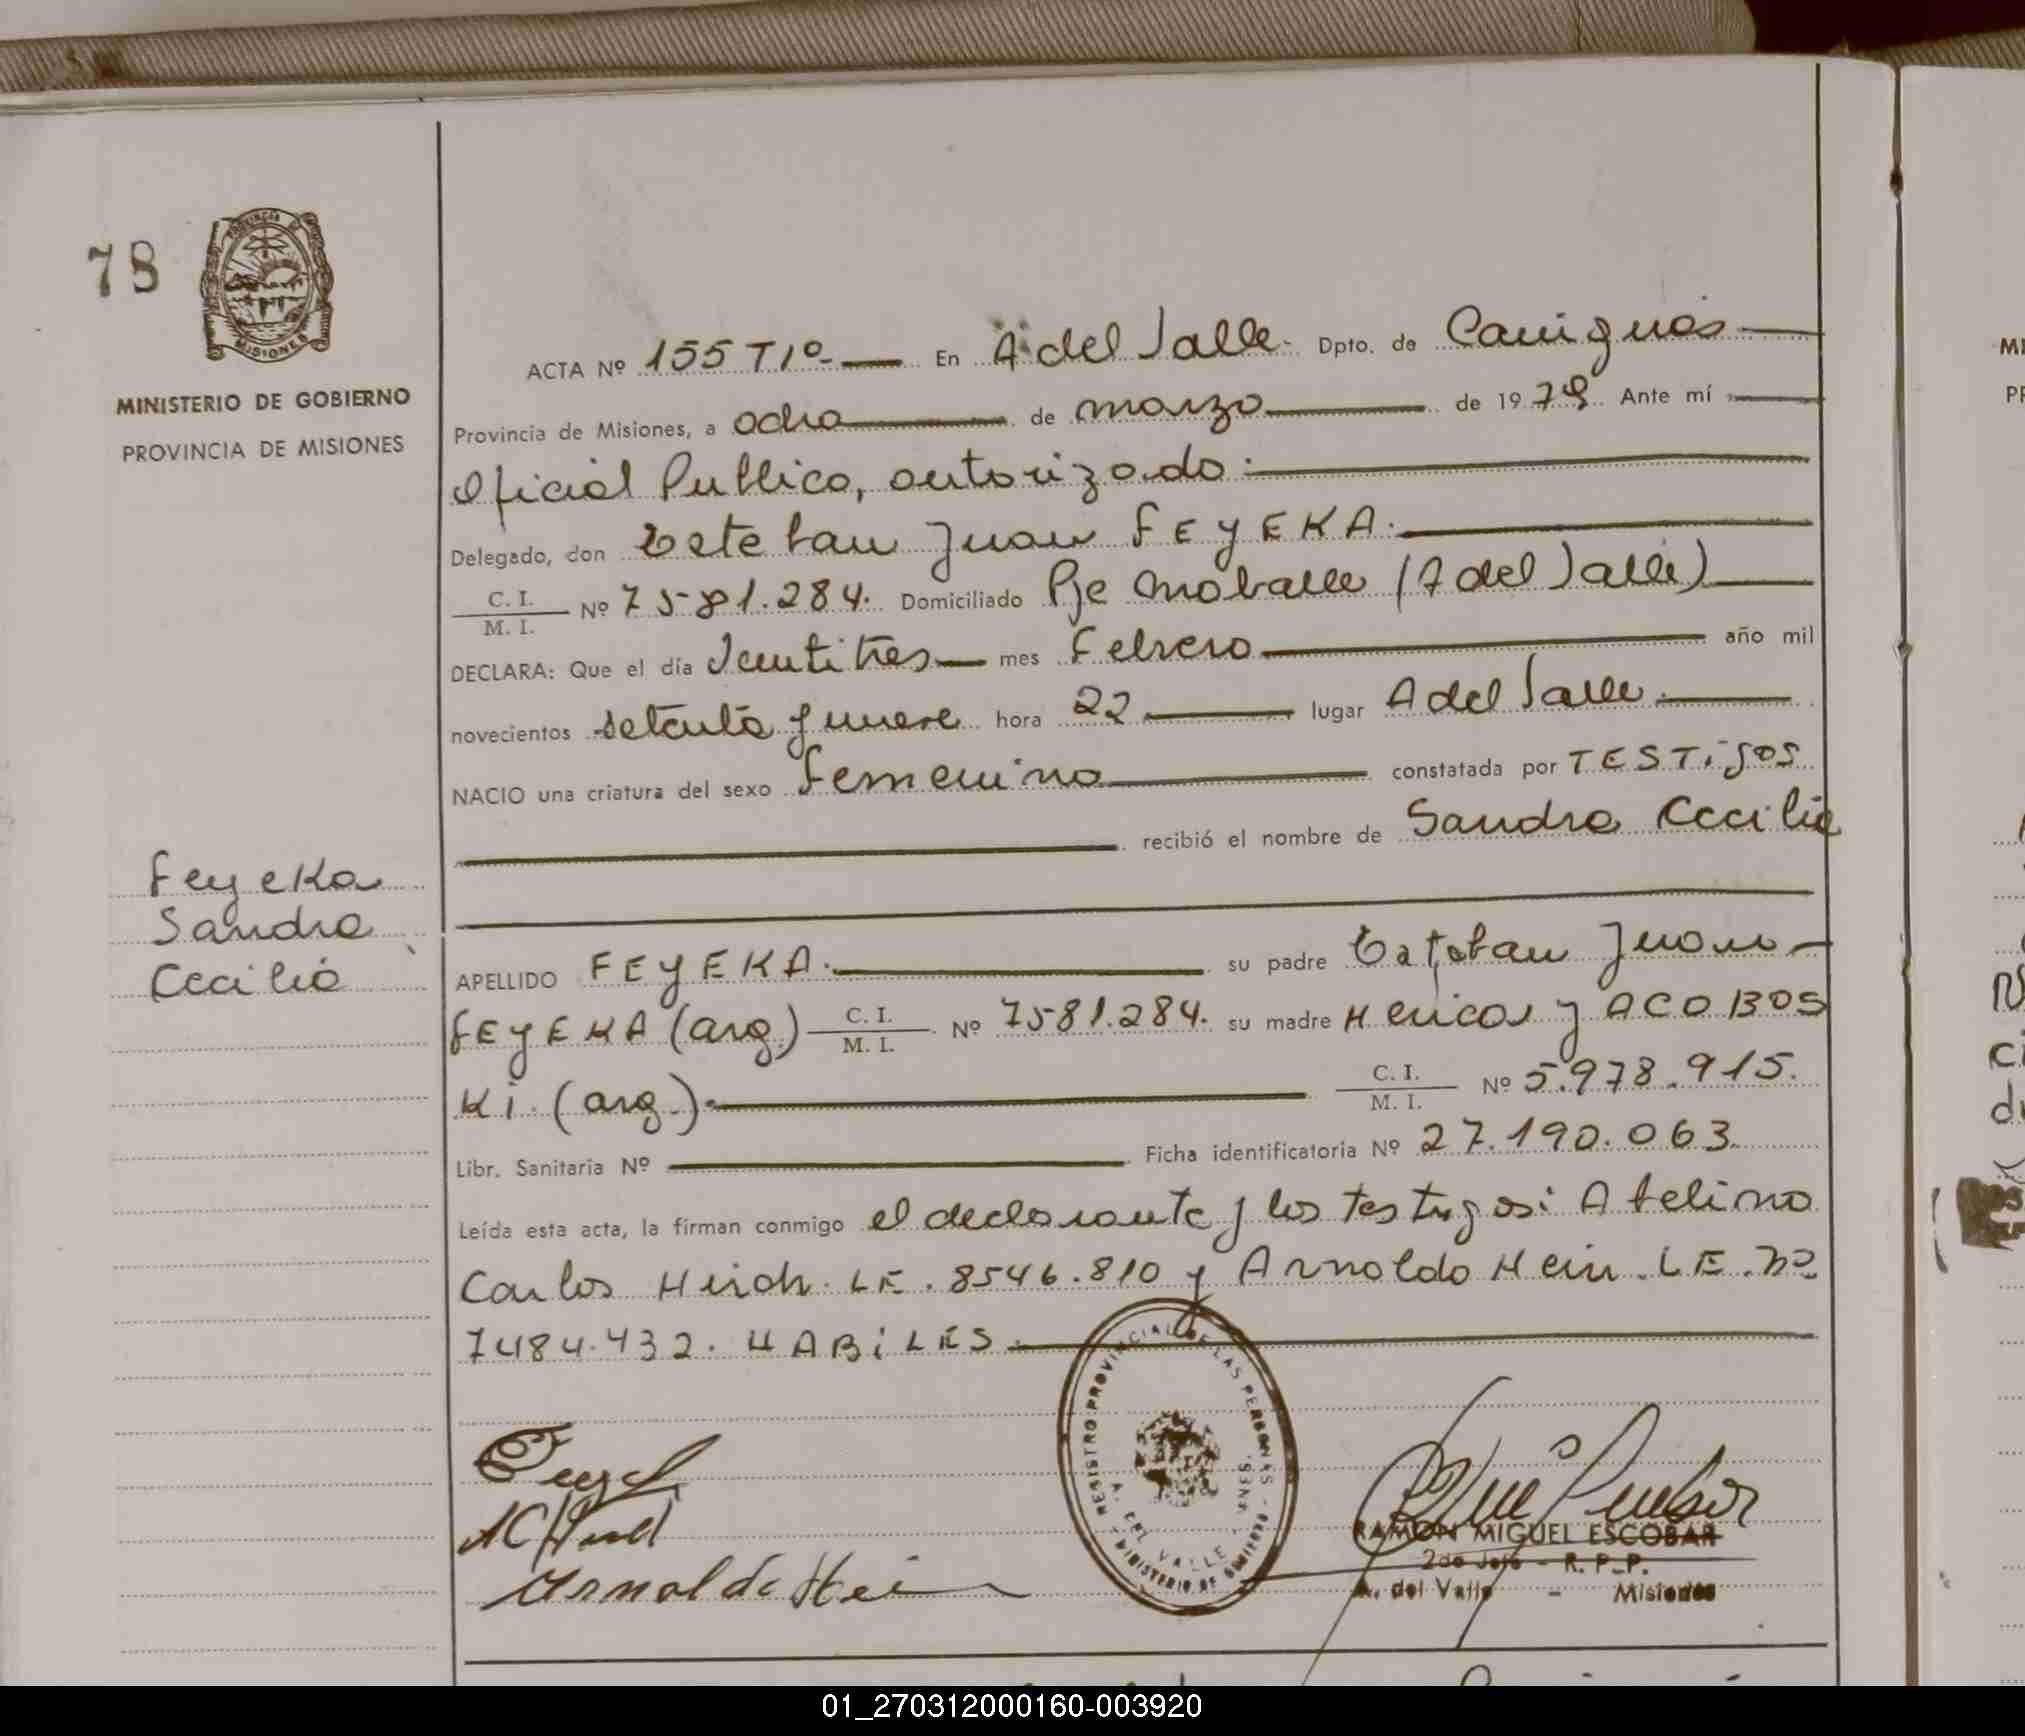 78
PROVINCIA DE
MISIONES
MINISTERIO DE GOBIERNO
PROVINCIA DE MISIONES
ACTA Nº 155 Tº1º.— En A del Valle. Dpto. de Cainguás
Provincia de Misiones, a ocho de marzo de 1979. Ante mí
Oficial Publico, autorizado.
Delegado, don Esteban Juan FEYEKA.
C. I.
M. I.
Nº 7581.284. Domiciliado Pje Moballe (A del Valle)
DECLARA: Que el día Veintitres mes Febrero año mil
novecientos setenta y nueve hora 22 lugar A del Valle.
NACIO una criatura del sexo femenino constatada por TESTigos
recibió el nombre de Sandra Cecilia
Feyeka
Sandra
Cecilia
APELLIDO FEYEKA. su padre Esteban Juan
FEYEKA (arg.) C. I.
M. I.
Nº 7581.284. su madre Henica YACOBOS
Ki. (arg.). C. I.
M. I.
Nº 5.978.915.
Libr. Sanitaria Nº Ficha identificatoria Nº 27.190.063.
Leída esta acta, la firman conmigo el declarante y los testigos: Abelino
Carlos Hirch. LE. 8546.810 y Arnoldo Hein. LE. Nº
7484.432. HABiLES.
REGISTRO PROVINCIAL DE LAS PERSONAS
A. DEL VALLE
MINISTERIO DE GOBIERNO
Arnoldo Hein
RAMON MIGUEL ESCOBAR
2do Jefe - R. P. P.
A. del Valle - Misiones
01_270312000160-003920